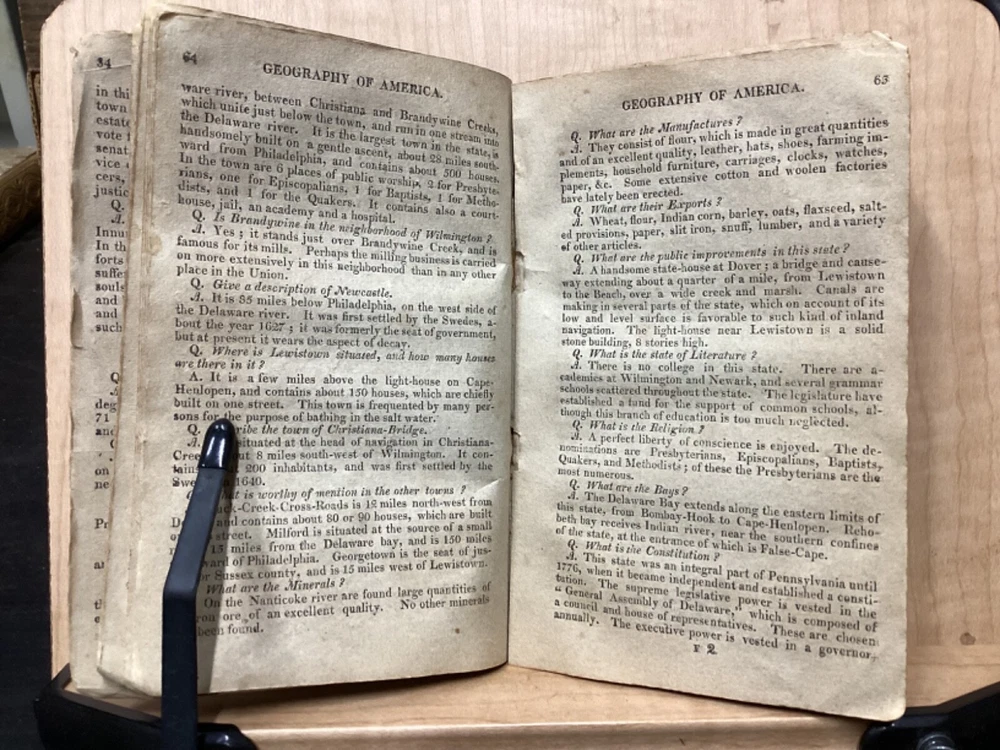 34
in thi
town
estate
vote
senat
vice
cers,
justic
Q.
A.
Innu
In th
forts
suffe
souls
and
and
such
Q
A
deg
71
and
on
ne
Pr
64
GEOGRAPHY OF AMERICA.
ware river, between Christiana and Brandywine Creeks,
which unite just below the town, and run in one stream into
the Delaware river. It is the largest town in the state, is
handsomely built on a gentle ascent, about 28 miles south-
ward from Philadelphia, and contains about 500 houses.
In the town are 6 places of public worship, 2 for Presbyte-
rians, one for Episcopalians, 1 for Baptists, 1 for Metho-
dists, and 1 for the Quakers. It contains also a court-
house, jail, an academy and a hospital.
Q. Is Brandywine in the neighborhood of Wilmington?
A. Yes; it stands just over Brandywine Creek, and is
famous for its mills. Perhaps the milling business is carried
on more extensively in this neighborhood than in any other
place in the Union.
Q. Give a description of Newcastle.
A. It is 35 miles below Philadelphia, on the west side of
the Delaware river. It was first settled by the Swedes, a-
bout the year 1627; it was formerly the seat of government,
but at present it wears the aspect of decay.
Q. Where is Lewistown situated, and how many houses
are there in it?
A. It is a few miles above the light-house on Cape-
Henlopen, and contains about 150 houses, which are chiefly
built on one street. This town is frequented by many per-
sons for the purpose of bathing in the salt water.
Q. ribe the town of Christiana-Bridge.
A. situated at the head of navigation in Christiana-
Cree ut 8 miles south-west of Wilmington. It con-
tains 200 inhabitants, and was first settled by the
Swe 1640.
at is worthy of mention in the other towns?
ck-Creek-Cross-Roads is 12 miles north-west from
D and contains about 80 or 90 houses, which are built
o street. Milford is situated at the source of a small
r 15 miles from the Delaware bay, and is 150 miles
ward of Philadelphia. Georgetown is the seat of jus-
or Sussex county, and is 15 miles west of Lewistown.
What are the Minerals?
On the Nanticoke river are found large quantities of
ron ore of an excellent quality. No other minerals
been found.
GEOGRAPHY OF AMERICA.
63
Q. What are the Manufactures?
A. They consist of flour, which is made in great quantities
and of an excellent quality, leather, hats, shoes, farming im-
plements, household furniture, carriages, clocks, watches,
paper, &c. Some extensive cotton and woolen factories
have lately been erected.
Q. What are their Exports?
A. Wheat, flour, Indian corn, barley, oats, flaxseed, salt-
ed provisions, paper, slit iron, snuff, lumber, and a variety
of other articles.
Q. What are the public improvements in this state?
A. A handsome state-house at Dover; a bridge and cause-
way extending about a quarter of a mile, from Lewistown
to the Beach, over a wide creek and marsh. Canals are
making in several parts of the state, which on account of its
low and level surface is favorable to such kind of inland
navigation. The light-house near Lewistown is a solid
stone building, 8 stories high.
Q. What is the state of Literature?
A. There is no college in this state. There are a-
cademies at Wilmington and Newark, and several grammar
schools scattered throughout the state. The legislature have
established a fund for the support of common schools, al-
though this branch of education is too much neglected.
Q. What is the Religion?
A. A perfect liberty of conscience is enjoyed. The de-
nominations are Presbyterians, Episcopalians, Baptists,
Quakers, and Methodists; of these the Presbyterians are the
most numerous.
Q. What are the Bays?
A. The Delaware Bay extends along the eastern limits of
this state, from Bombay-Hook to Cape-Henlopen. Reho-
beth bay receives Indian river, near the southern confines
of the state, at the entrance of which is False-Cape.
Q. What is the Constitution?
A. This state was an integral part of Pennsylvania until
1776, when it became independent and established a consti-
tution. The supreme legislative power is vested in the
"General Assembly of Delaware," which is composed of
a council and house of representatives. These are chosen
annually. The executive power is vested in a governor,
F 2